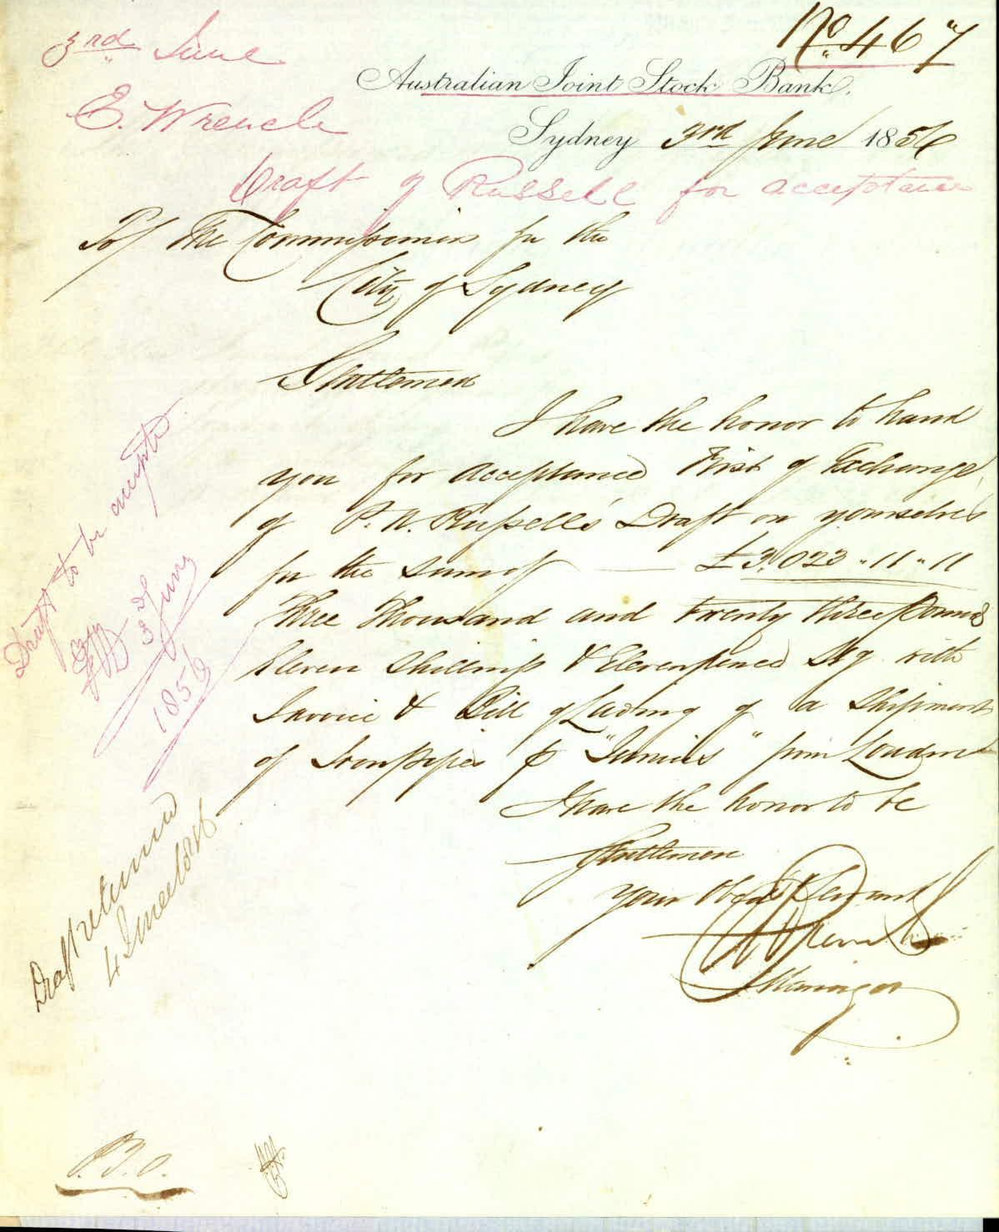 No. 467
3rd June
Australian Joint Stock Bank,
E. Wrench
Sydney 3rd June 1856
Draft of Russell for acceptance
To/ The Commissioners for the
City of Sydney
Gentlemen
I have the honor to hand
you for acceptance First of Exchange,
of P. N. Russell's Draft on yourselves
for the sum of — £3,023 " 11 " 11
Three Thousand and twenty three pounds
Eleven Shillings & Elevenpence Stg with
Invoice & Bill of Lading of a Shipment
of Iron Pipes p "Junius" from London
I have the honor to be
Gentlemen
Your Obedt Servant
Manager
Draft to be accepted
3d June
1856
Draft returned
4 June 1856